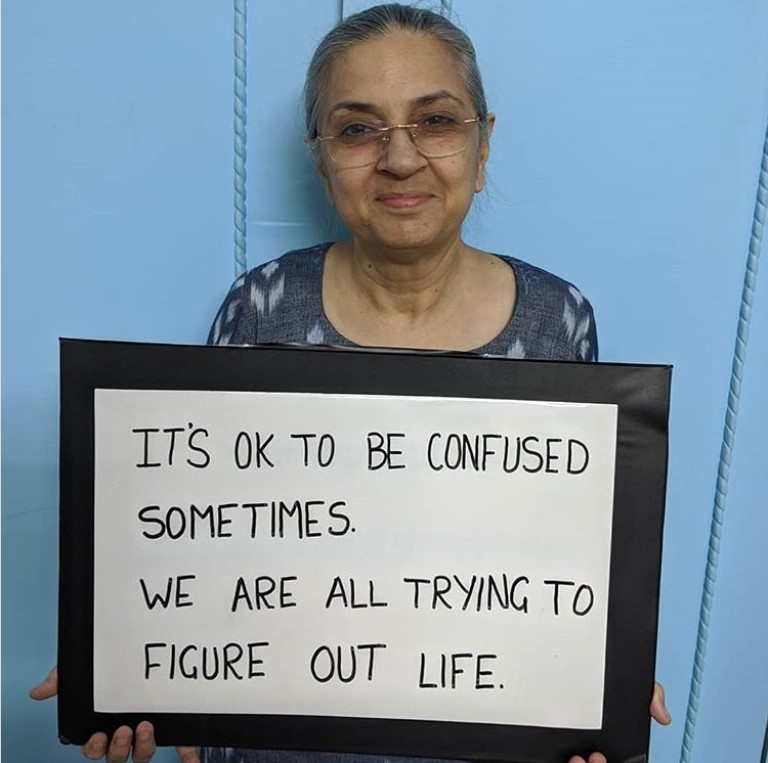 IT'S OK TO BE CONFUSED
SOMETIMES.
WE ARE ALL TRYING TO
FIGURE OUT LIFE.